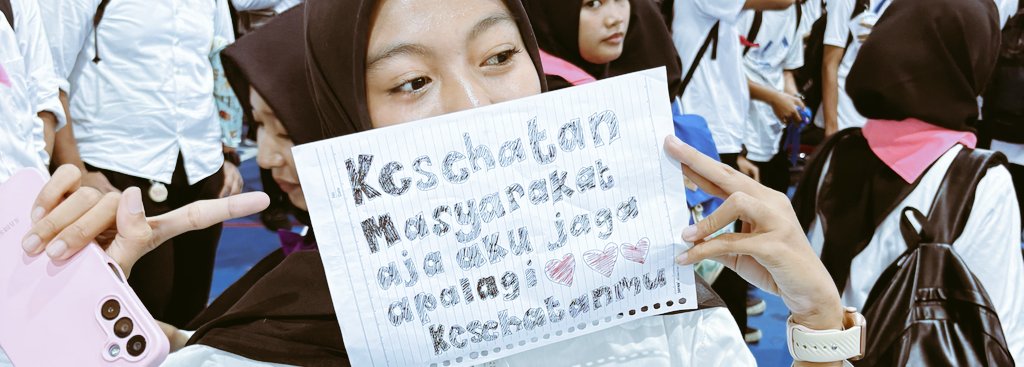 Kesehatan
Masyarakat
aja aku jaga
apalagi
kesehatanmu
SAMSUNG